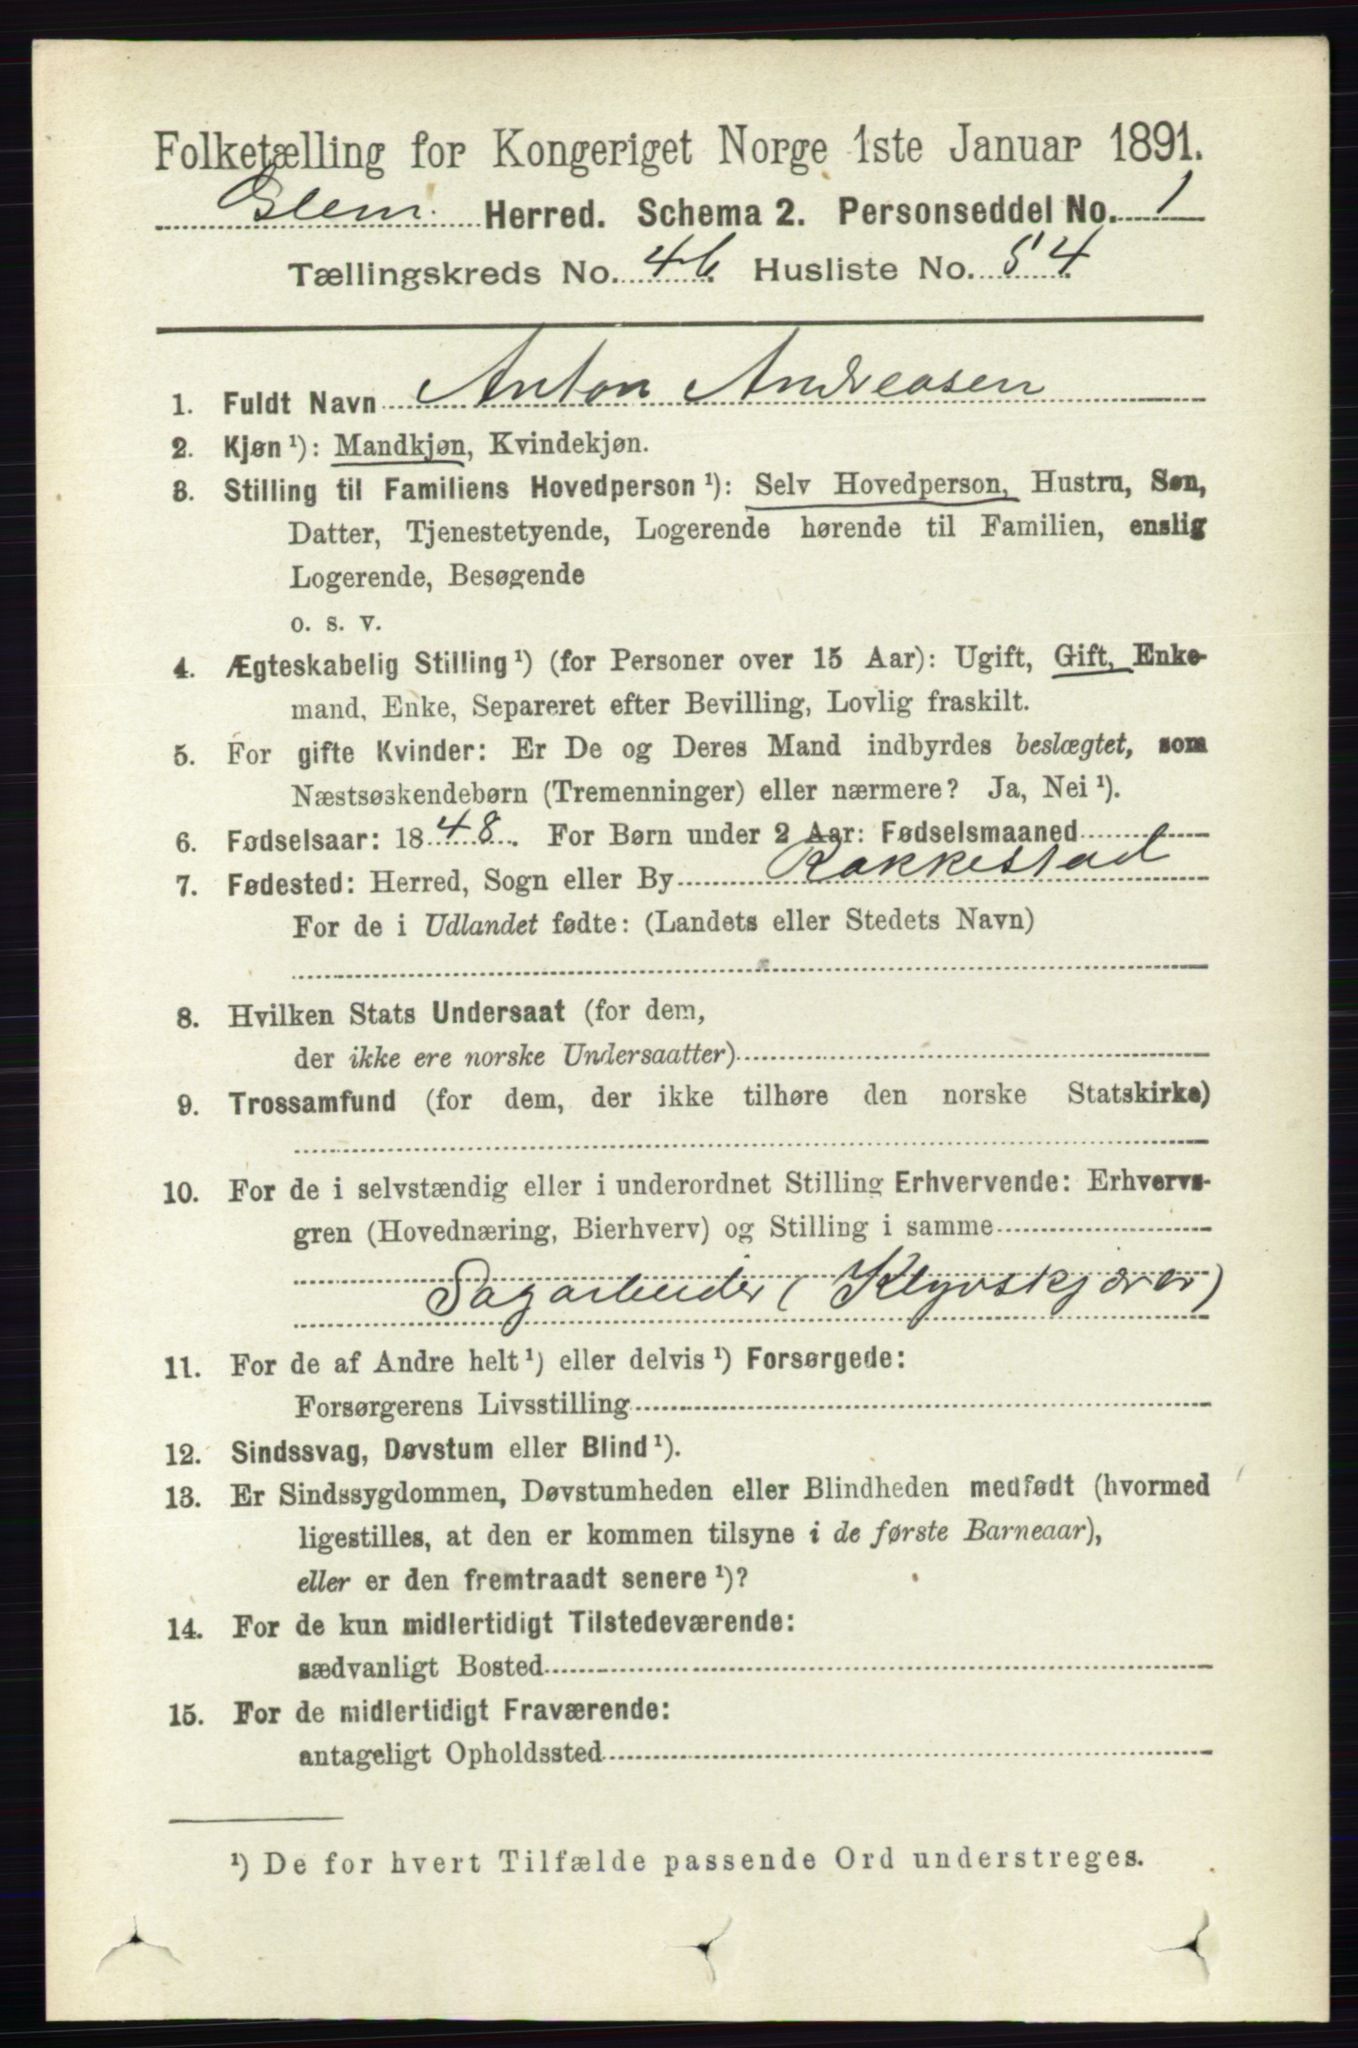 Folketælling for Kongeriget Norge 1ste Januar 1891.
Glem. Herred. Schema 2. Personseddel No. 1
Tællingskreds No. 46 Husliste No. 54
1. Fuldt Navn Anton Andreasen
2. Kjøn ¹): Mandkjøn, Kvindekjøn.
3. Stilling til Familiens Hovedperson ¹): Selv Hovedperson, Hustru, Søn,
Datter, Tjenestetyende, Logerende hørende til Familien, enslig
Logerende, Besøgende
o. s. v.
4. Ægteskabelig Stilling ¹) (for Personer over 15 Aar): Ugift, Gift, Enke-
mand, Enke, Separeret efter Bevilling, Lovlig fraskilt.
5. For gifte Kvinder: Er De og Deres Mand indbyrdes beslægtet, som
Næstsøskendebørn (Tremenninger) eller nærmere? Ja, Nei ¹).
6. Fødselsaar: 1848. For Børn under 2 Aar: Fødselsmaaned
7. Fødested: Herred, Sogn eller By Rakkestad
For de i Udlandet fødte: (Landets eller Stedets Navn)
8. Hvilken Stats Undersaat (for dem,
der ikke ere norske Undersaatter)
9. Trossamfund (for dem, der ikke tilhøre den norske Statskirke)
10. For de i selvstændig eller i underordnet Stilling Erhvervende: Erhvervs-
gren (Hovednæring, Bierhverv) og Stilling i samme
Sagarbeider (Klyvskjærer)
11. For de af Andre helt ¹) eller delvis ¹) Forsørgede:
Forsørgerens Livsstilling
12. Sindssvag, Døvstum eller Blind ¹).
13. Er Sindssygdommen, Døvstumheden eller Blindheden medfødt (hvormed
ligestilles, at den er kommen tilsyne i de første Barneaar),
eller er den fremtraadt senere ¹)?
14. For de kun midlertidigt Tilstedeværende:
sædvanligt Bosted
15. For de midlertidigt Fraværende:
antageligt Opholdssted
¹) De for hvert Tilfælde passende Ord understreges.